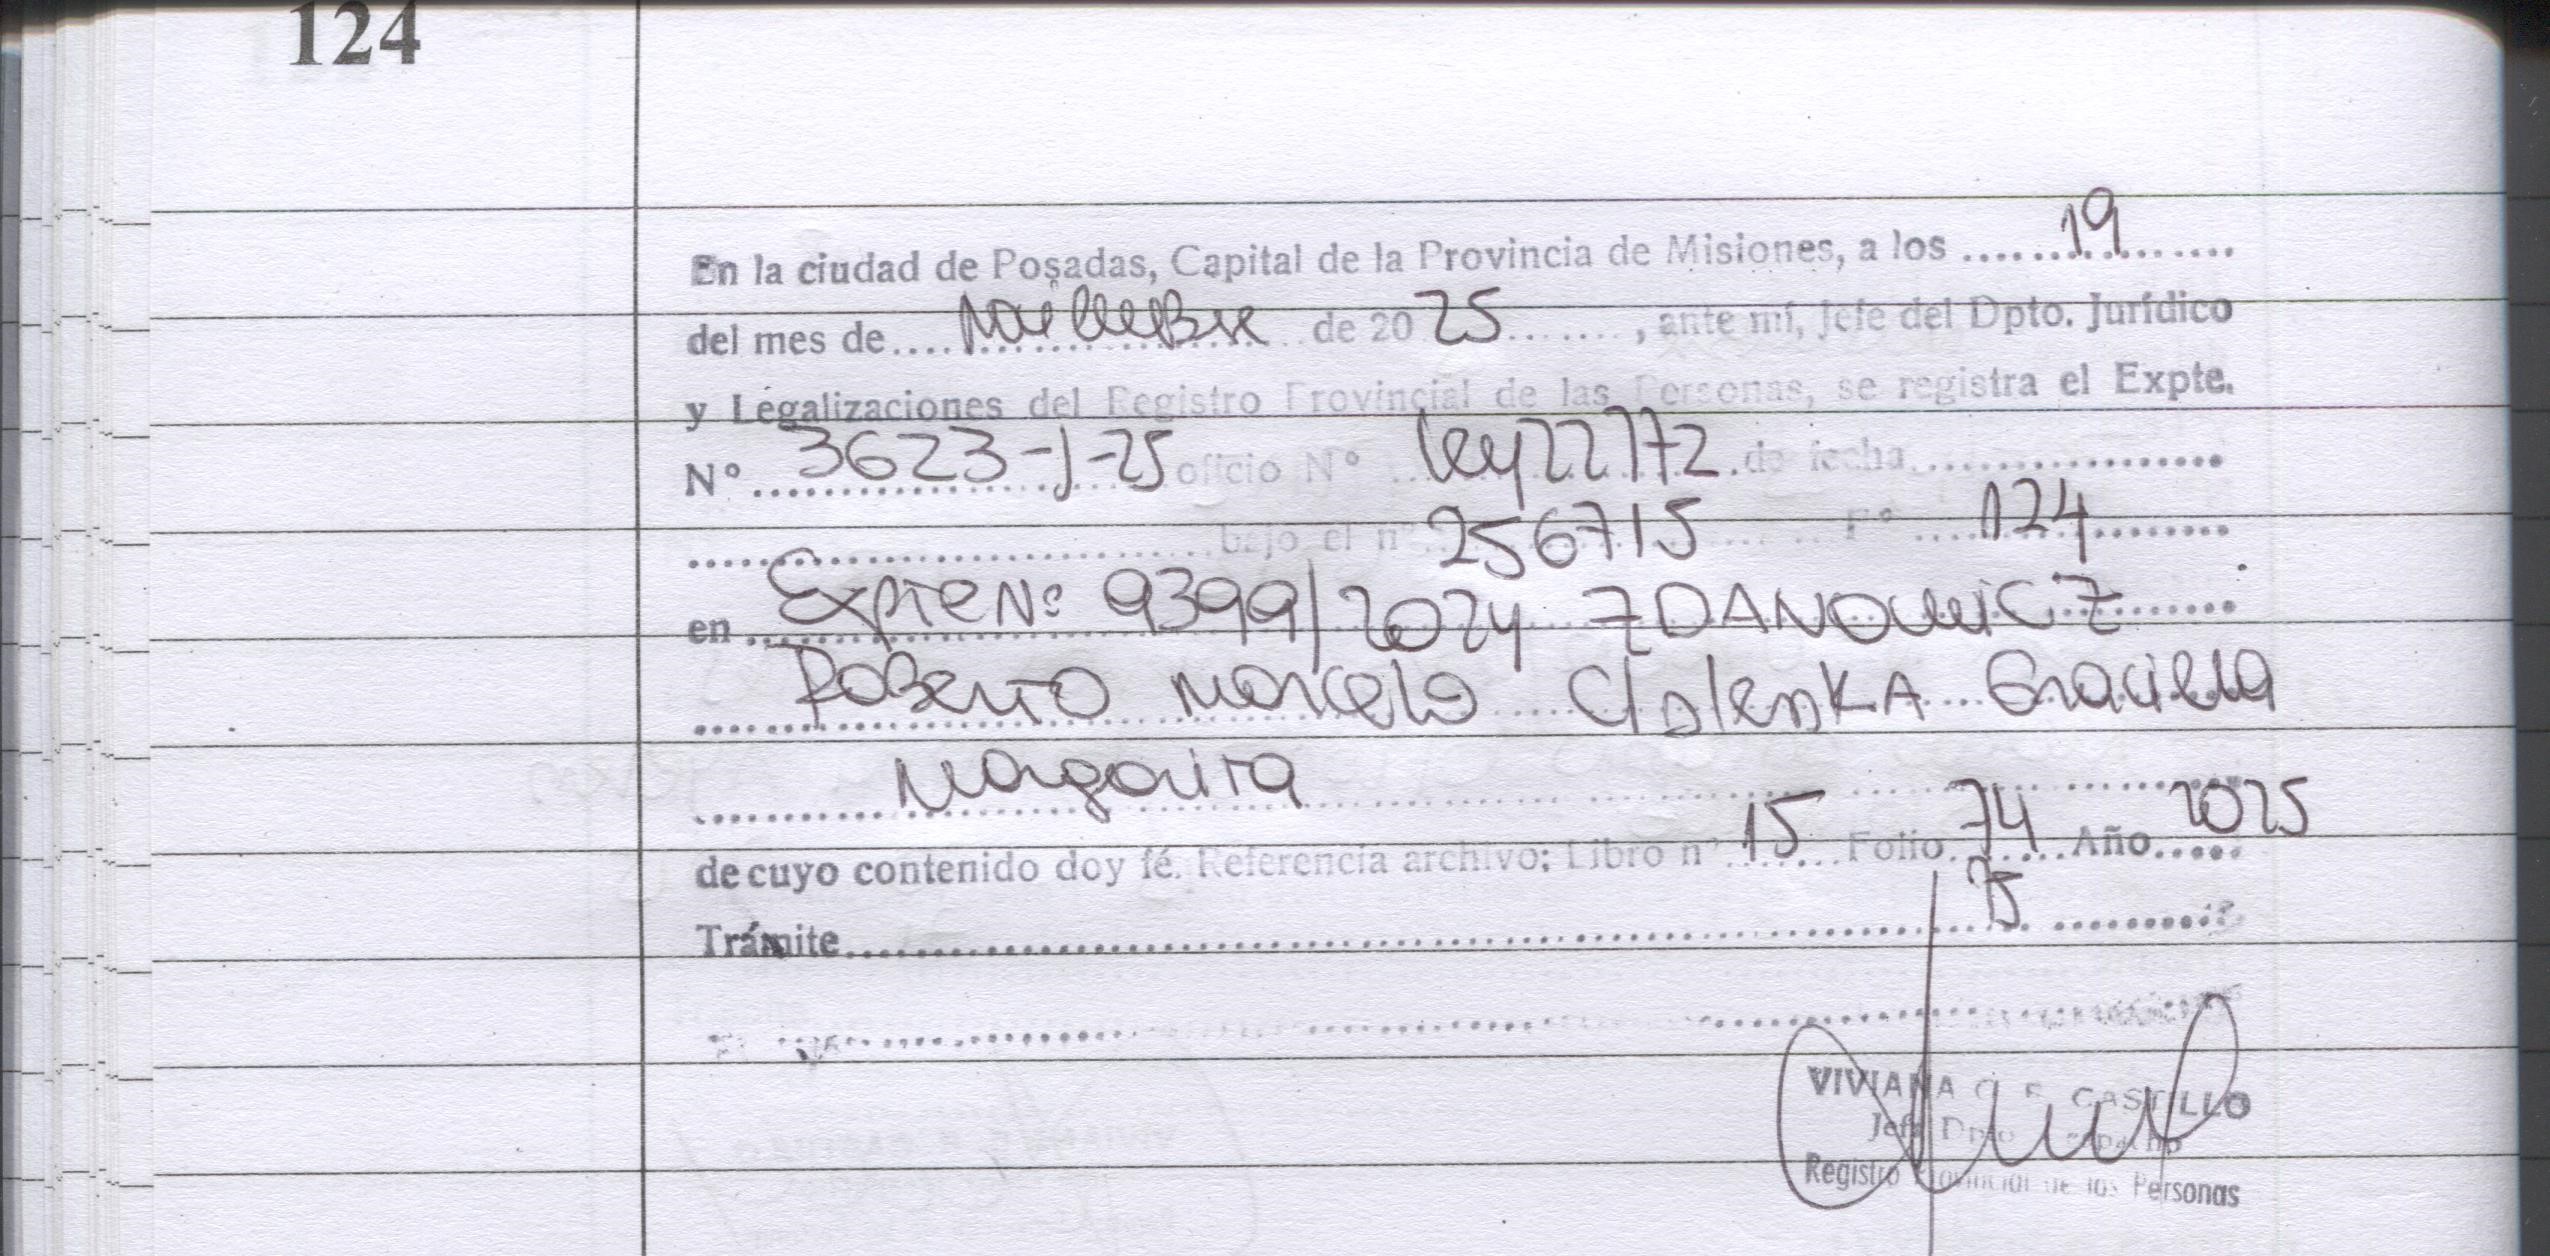 124
En la ciudad de Posadas, Capital de la Provincia de Misiones, a los 19
del mes de Noviembre de 2025, ante mí, Jefe del Dpto. Jurídico
y Legalizaciones del Registro Provincial de las Personas, se registra el Expte.
Nº 3623-J-25 oficio Nº ley 22172 de fecha
bajo el nº 256715 Fº 124
en Expte Nº: 9399/2024 ZDANOWICZ
Roberto Marcelo C/ Graciela
Margarita
de cuyo contenido doy fé. Referencia archivo: Libro nº 15 Folio 74 Año 2025
75
Trámite
VIVIANA CASTILLO
Jefe Dpto
Registro Provincial de las Personas